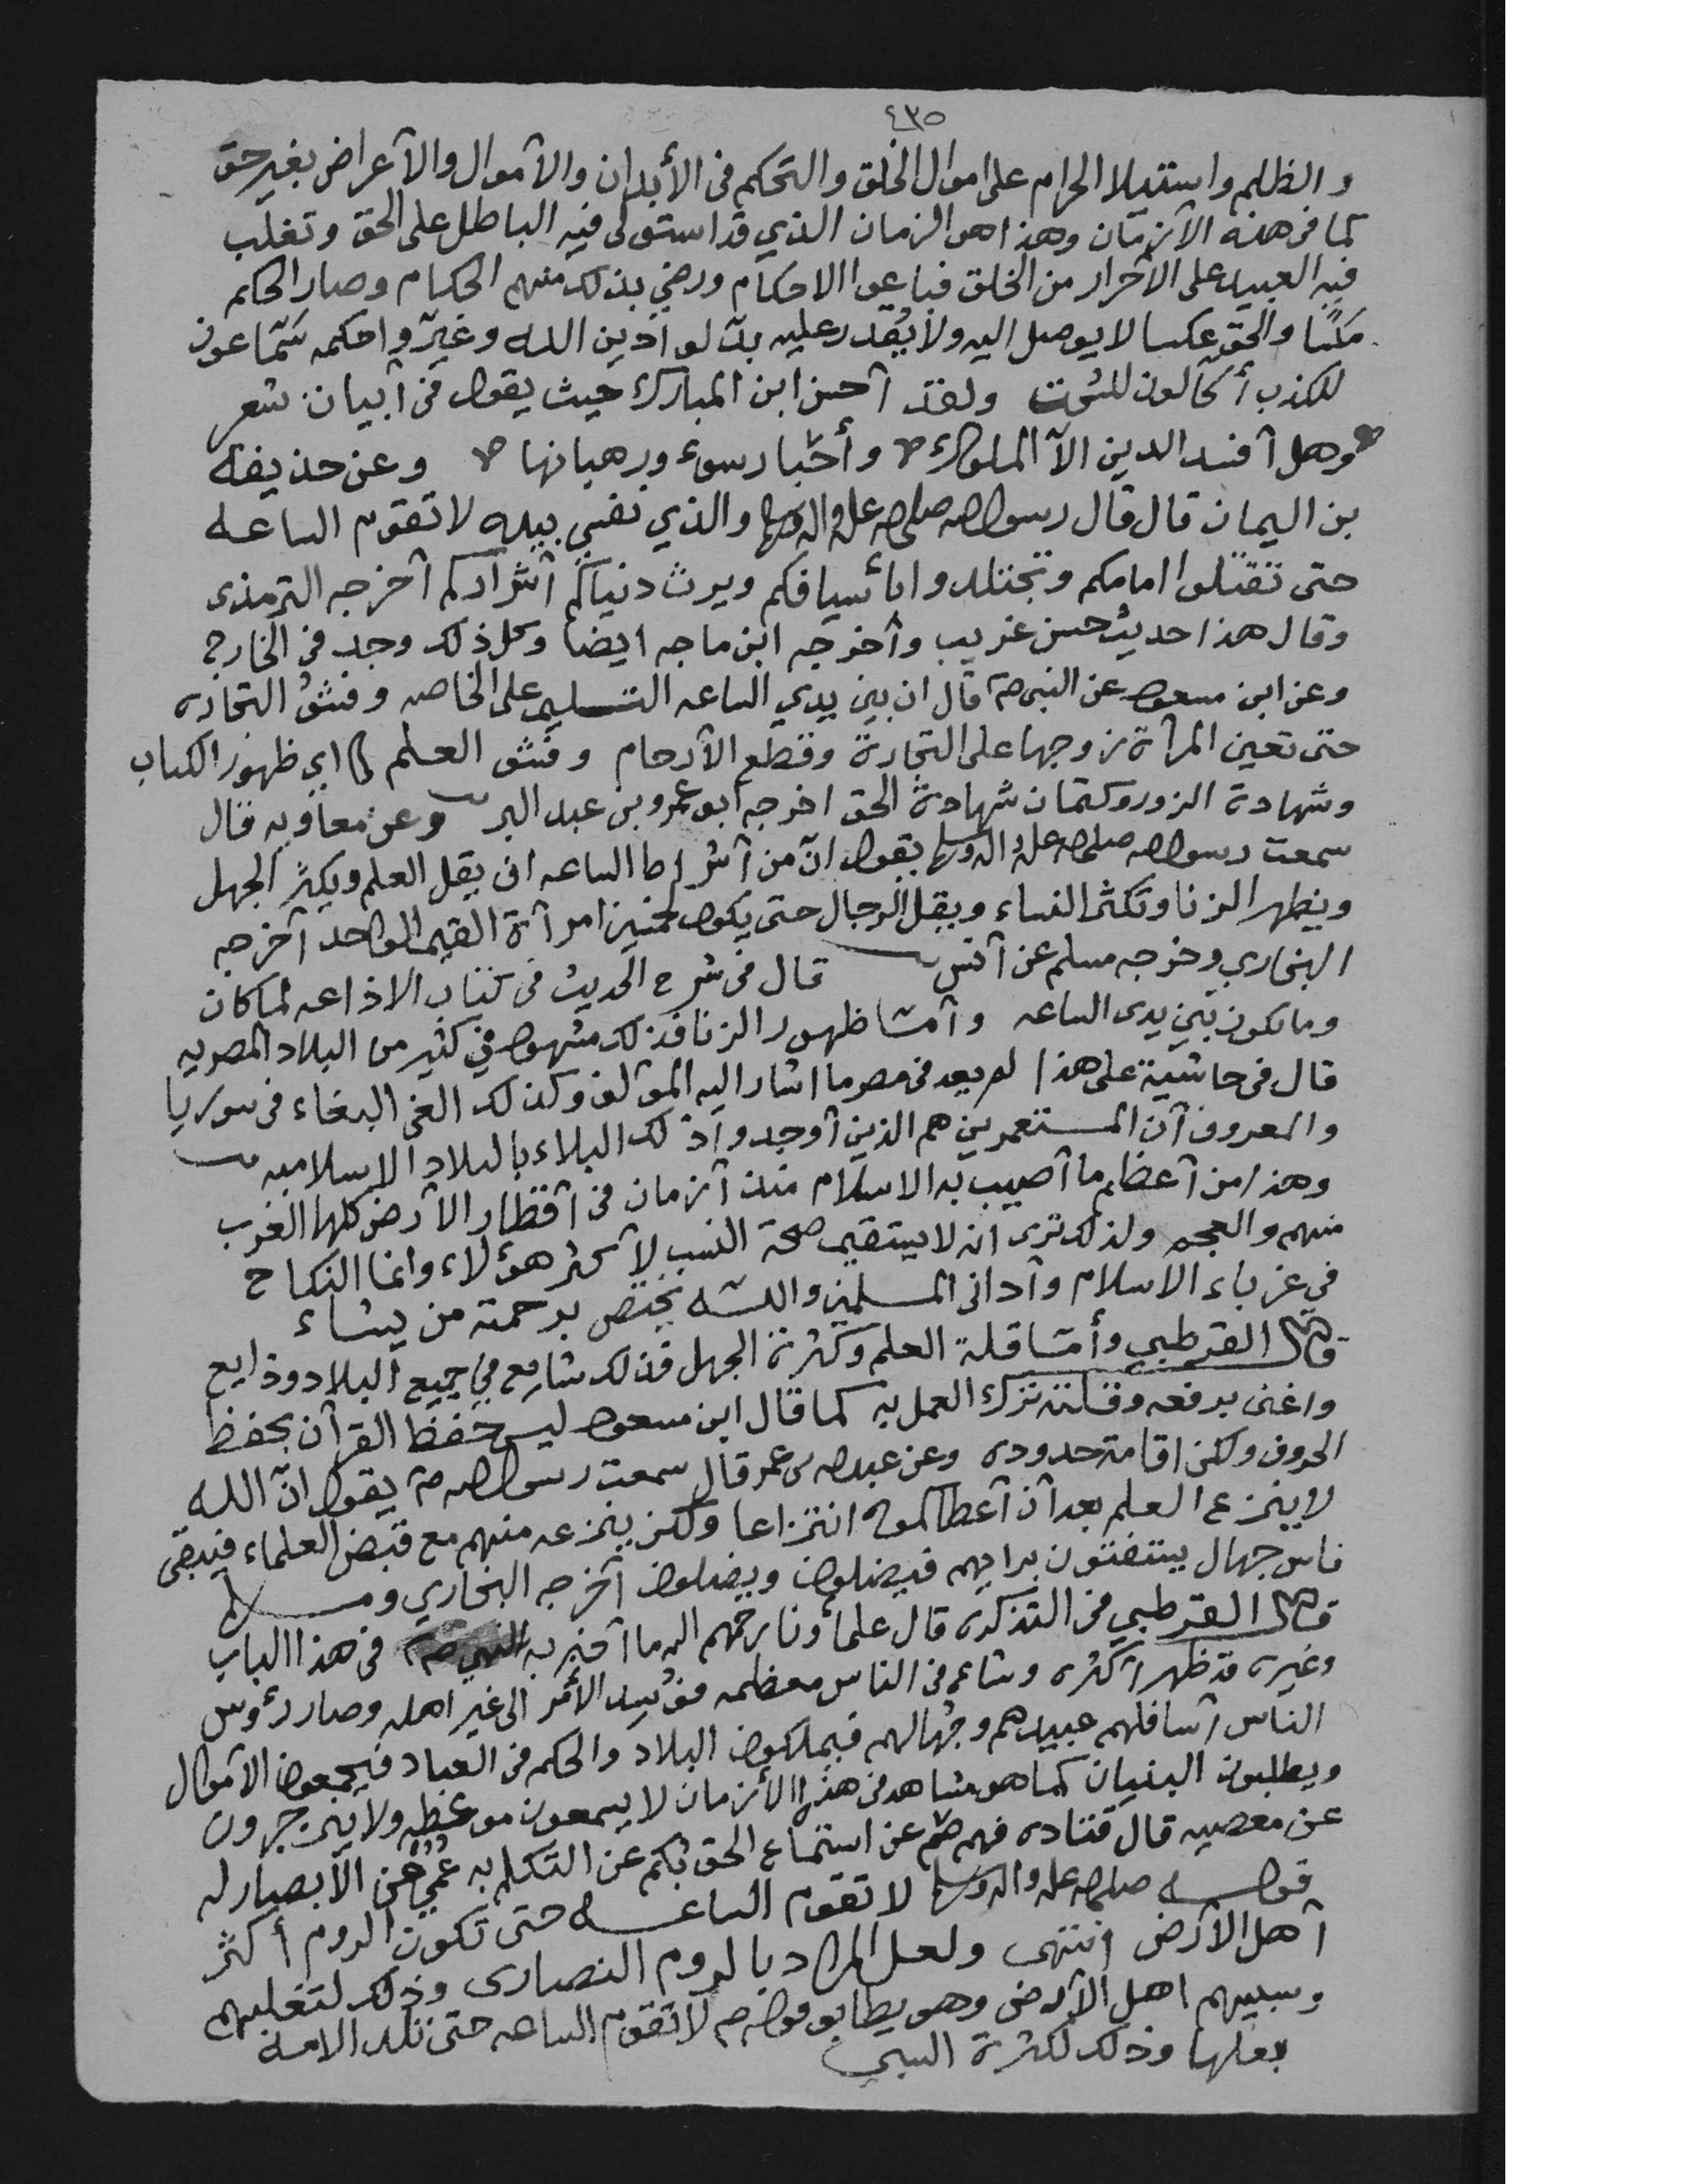 ٤٣٥
والظلم واستيلا الحرام على اموال الخلق والتحكم في الأبدان والآموال والآعراض بغير حق
كما في هذه الآزمان وهذا هو الزمان الذي قد استولى فيه الباطل على الحق وتغلب
فيه العبيد على الآحرار من الخلق فباعوا الاحكام ورضي بذلك منهم الحكام وصار الحكم
مكسًا والحق عكسا لا يوصل اليه ولا يُقدر عليه بدّلوا دين الله وغيّروا حكمه سَمّاعون
للكذب أكّالون للسُحت ولقد آحسن ابن المبارك حيث يقول في آبيات شعر
وهل آفسد الدين الآ الملوك وأحْبار سوء ورهبانها وعن حذيفه
بن اليمان قال قال رسول الله صلى الله عليه واله وسلم والذي نفسي بيده لا تقوم الساعه
حتى تقتلوا امامكم وتجتلدوا بأسيافكم ويرث دنياكم آشراركم آخرجه الترمذى
وقال هذا حديث حسن غريب وأخرجه ابن ماجه ايضا وكل ذلك وجد في الخارج
وعن ابن مسعود عن النبي ص قال ان بين يدي الساعه التسليم على الخاصه وفشوُ التجاره
حتى تعين المرآة زوجها على التجارة وقطع الآرحام وفشو العلم اي ظهور الكتاب
وشهادة الزور وكتمان شهادة الحق اخرجه ابو عمرو بن عبد البر وعن معاويه قال
سمعت رسول الله صلى الله عليه واله وسلم يقول انّ من آشراط الساعه ان يقل العلم ويكثر الجهل
ويظهر الزنا وتكثر النساء ويقل الرجال حتى يكون لخمسين امرآة القيم الواحد آخرجه
البخاري وخرجه مسلم عن آنس قال في شرح الحديث في كتاب الاذاعه لما كان
وما يكون بين يدى الساعه وآمّا ظهور الزنا فذلك مشهور في كثير من البلاد المصريه
قال في حاشية على هذا لم يعد في مصر ما اشار اليه المؤلف وكذلك الغي البغاء في سوريا
والمعروف آن المستعمرين هم الذين آوجدوا ذلك البلاء بالبلاد الاسلاميه
وهذا من آعظم ما آصيب به الاسلام منذ آزمان في آقطار الآرض كلها العرب
منهم والعجم ولذلك ترى انه لا يستقيم صحة النسب لآكثر هؤلاء وانما النكاح
في غرباء الاسلام وآدانى المسلمين واللـه يختص برحمته من يشاء
قال القرطبي وأمّا قلة العلم وكثرة الجهل فذلك شايع في جميع البلاد وذايع
واعنى برفعه وقلته ترك العمل به كما قال ابن مسعود ليس حفظ القرآن بحفظ
الحروف ولكن اقامة حدوده وعن عبد الله بن عمر قال سمعت رسول الله ص يقول انّ الله
لا ينزع العلم بعد آن آعطاكموه انتزاعا ولكن ينزعه منهم مع قبض العلماء فيبقى
ناس جهال يستفتون برايهم فيضلون ويضلون آخرجه البخاري ومسلم
قال القرطبي في التذكره قال علماؤنا رحمهم الله ما آخبر به النبي ص في هذا الباب
وغيره قد ظهر آكثره وشاع في الناس معظمه فوُسد الأمر الى غير اهله وصار رؤوس
الناس آسافلهم عبيدهم وجُهالهم فيملكون البلاد والحكم في العباد فيجمعون الآموال
ويطلبون البنيان كما هو مشاهد في هذه الأزمان لا يسمعون موعظه ولا ينزجرون
عن معصيه قال قتاده فهم صُم عن استماع الحق بُكم عن التكلم به عُمي عن الآبصار له
قولـه صلى الله عليه واله وسلم لا تقوم الساعـه حتى تكون الروم أكثر
آهل الآرض انتهى ولعل المراد بالروم النصارى وذلك لتغلبهم
وسبيهم اهل الآرض وهو يطابق قوله ص لا تقوم الساعه حتى تلد الامة
بعلها وذلك لكثرة السبي